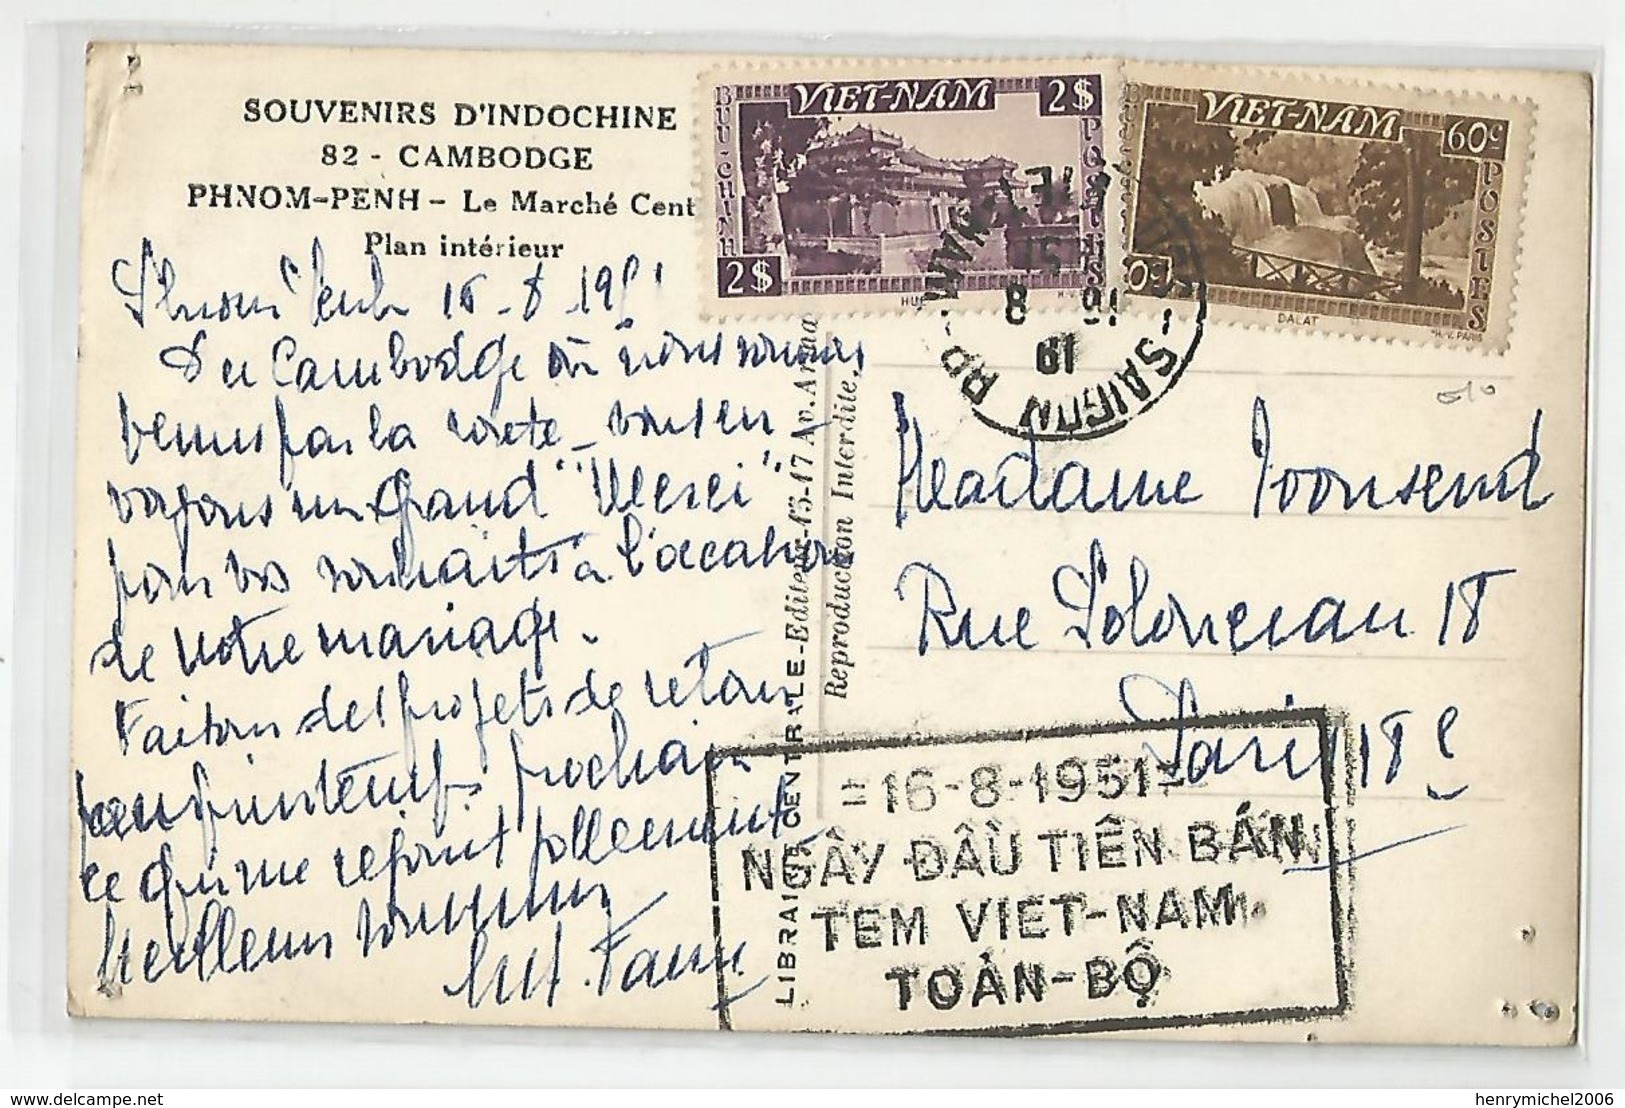 SOUVENIRS D'INDOCHINE
82 - CAMBODGE
PHNOM-PENH - Le Marché Cent
Plan intérieur
Phnom Penh 16-8-1951
Du Cambodge où nous sommes
venus par la route - vous en-
voyons un grand "Merci"
pour vos souhaits à l'occasion
de notre mariage.
Faisons des projets de retour
au printemps prochain
ce qui me réjouit follement
Meilleurs souvenirs
LIBRAIRIE CENTRALE-Editeur-15-17 Av.
Reproduction Interdite.
VIET-NAM
2$
BUU-CHINH
POSTES
2$
HUE
VIET-NAM
60c
POSTES
DALAT
H.V. PARIS
SAIGON RP
VIET-NAM
16 8
51
19
Madame Toonsend
Rue Poloneceau 18
Paris 18e
=16-8-1951=
NGÀY ĐẦU TIÊN BÁN
TEM VIET-NAM
TOÀN-BỘ
henrymichel2006